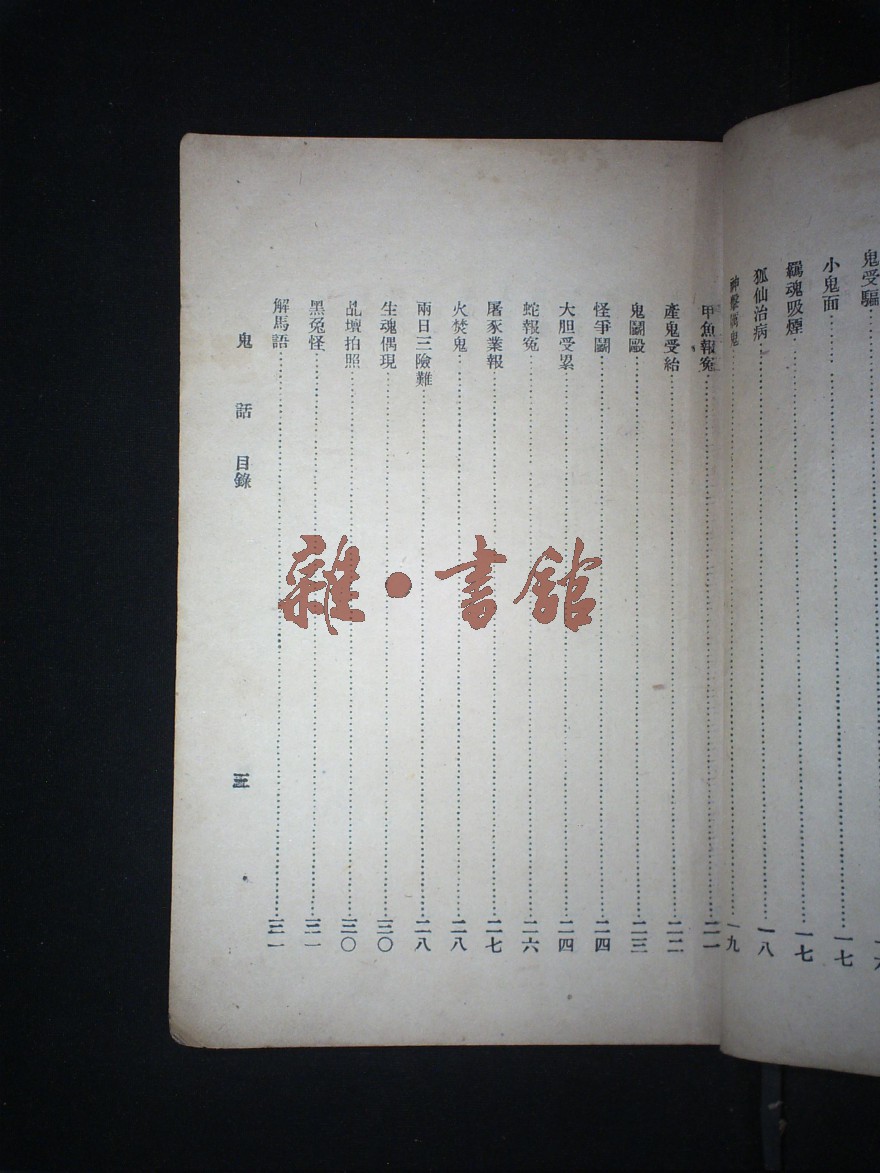 鬼受驅
小鬼面……一七
羈魂吸煙……一七
狐仙治病……一八
神擊厲鬼……一九
甲魚報寃……二一
產鬼受紿……二二
鬼鬭毆……二三
怪爭鬭……二四
大胆受累……二四
蛇報寃……二六
屠豕業報……二七
火焚鬼……二八
兩日三險難……二八
生魂偶現……三〇
乩壇拍照……三〇
黑兔怪……三一
解馬語……三一
鬼話 目錄
三
雜·書館